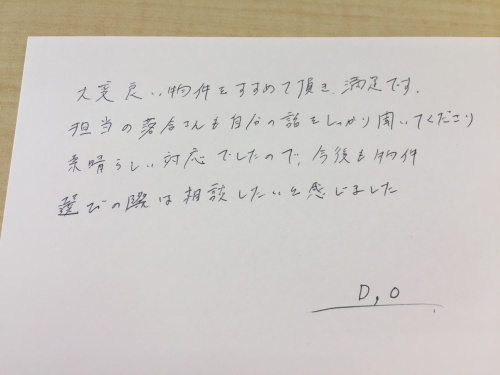 大変良い物件をすすめて頂き、満足です。
担当の落合さんも自分の話をしっかり聞いてくださり
素晴らしい対応でしたので、今後も物件
選びの際は相談したいと感じました
D,O